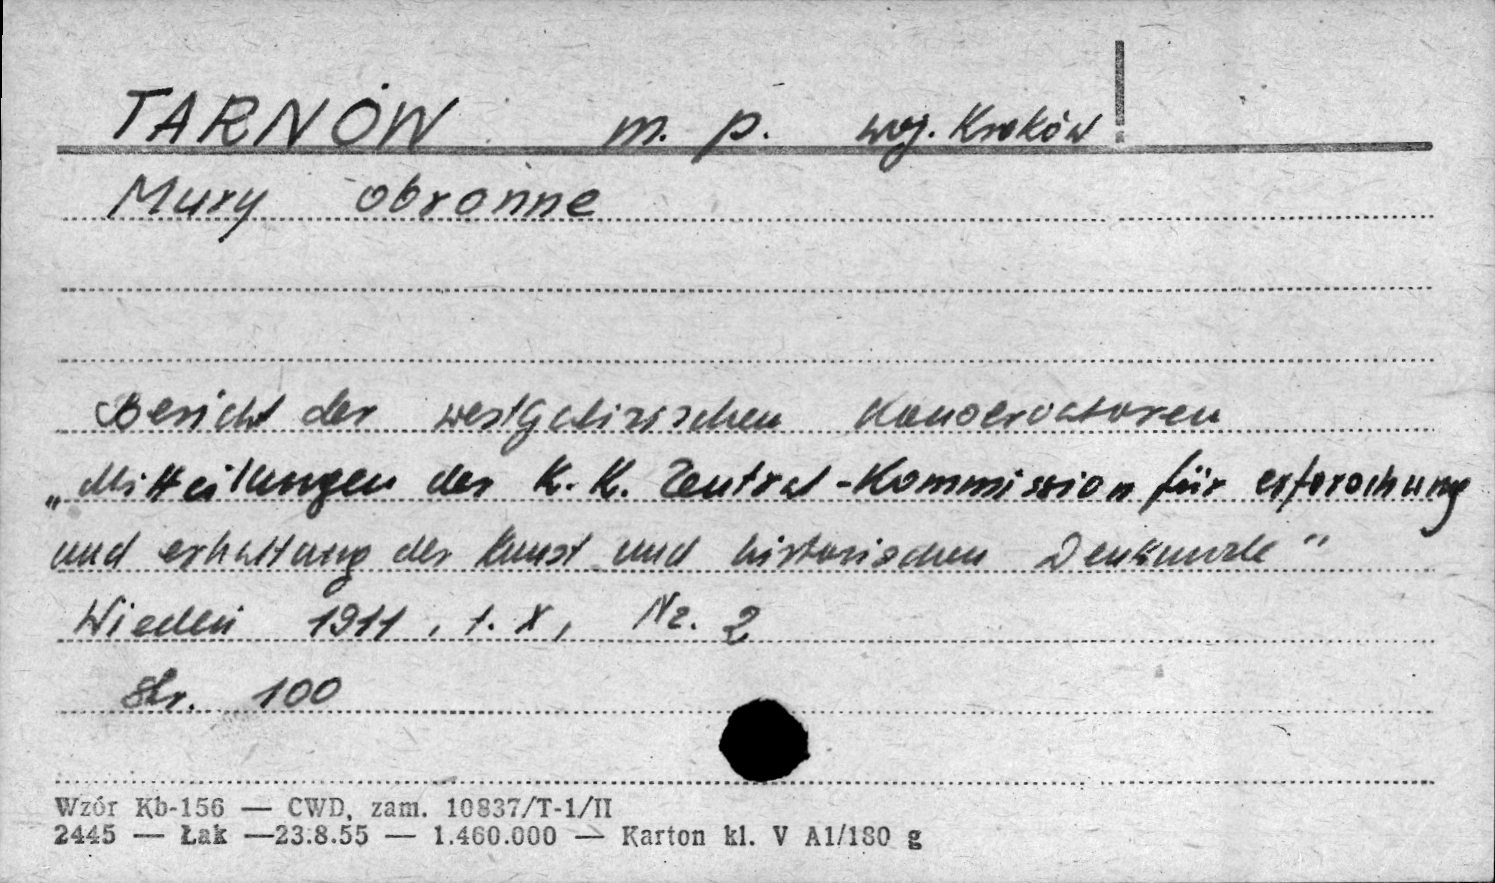 TARNÓW m. p. woj. Kraków
Mury obronne
Bericht der westgalizischen Konservatoren
„Mitteilungen der K. K. Zentral-Kommission für erforschung
und erhaltung der Kunst und historischen Denkmale"
Wiedeń 1911, t. X, Nr. 2
Str. 100
Wzór Kb-156 — CWD, zam. 10837/T-1/II
2445 — Łak —23.8.55 — 1.460.000 — Karton kl. V A1/180 g